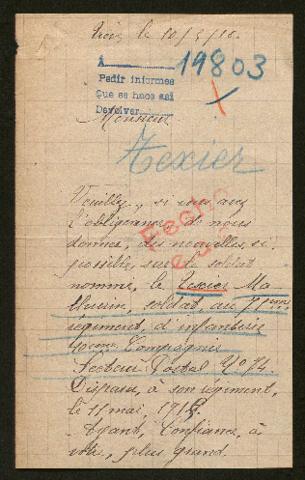 le 10/5/16.
A
19803
Pedir informes
Que se hace asi
Devolver
Monsieur
Texier
Veuillez, si vous avez
l'obligeance, de nous
donner, des nouvelles, si,
possible, sur le soldat
nommé, le Texier Ma
thurin, soldat, au 71eme
régiment, d'infanterie
Compagnie
Secteur Postal
Disparu, à son régiment,
le 11 mai, 1915.
Ayant, Confiance, à
votre, plus grand.